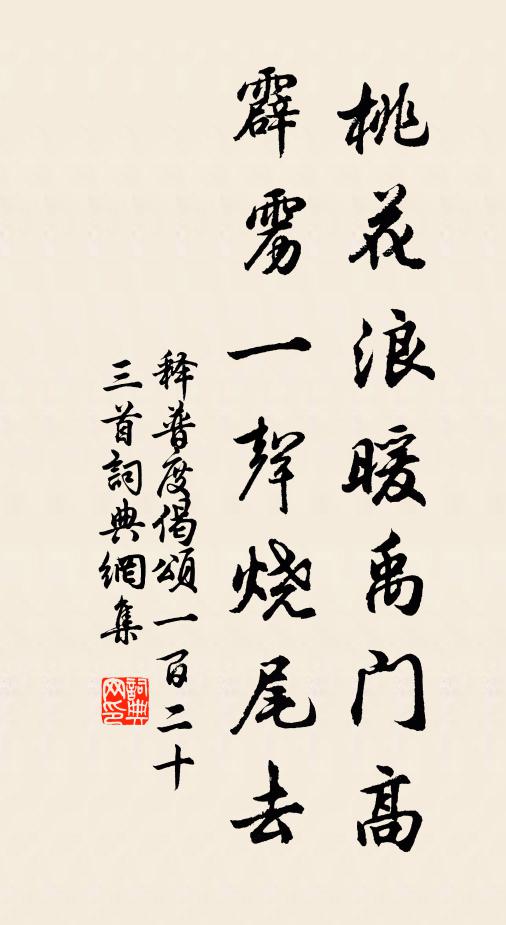 桃花浪暖禹门高
霹雳一聲烧尾去
释普度偈頌一百二十
三首詞典網集
詞典
网印